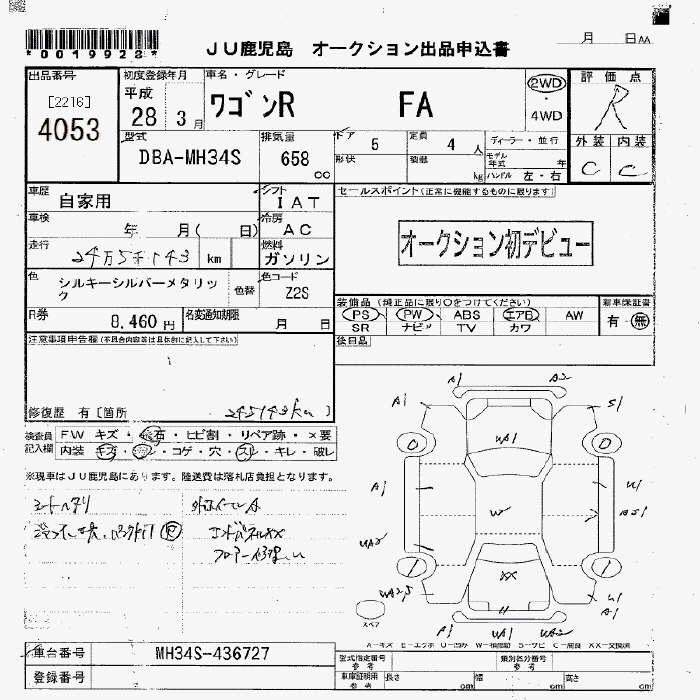 *0019928*
JU鹿児島 オークション出品申込書
月 日AA
出品番号
[2216]
4053
初度登録年月
平成
28 3月
車名・グレード
ワゴンR FA
2WD
・
4WD
評価点
R
外装 内装
C C
型式
DBA-MH34S
排気量
658
cc
ドア 5
定員 4 人
形状
積載 kg
ディーラー・並行
モデル年式 年
ハンドル 左・右
車歴
自家用
シフト
IAT
セールスポイント(正常に機能するものに限ります)
オークション初デビュー
車検
年 月( 日)
冷房
AC
走行
24万5千143 km
燃料
ガソリン
色
シルキーシルバーメタリック
色替
色コード
Z2S
装備品(純正品に限り○をつけてください)
PS PW ABS エアB AW
SR ナビ TV カワ
新車保証書
有・無
R券
8,460円
名変通知期限
月 日
後日品
注意事項申告欄(不具合内容等は具体的に記入して下さい)
修復歴 有〔箇所 245143km 〕
検査員記入欄
FW キズ・飛石・ヒビ割・リペア跡・×要
内装 キズ・・コゲ・穴・スレ・キレ・破レ
※現車はJU鹿児島にあります。陸送費は落札店負担となります。
シートヘタリ
エンドパネルXX
フロアー修理
A1 A2
A1 S1
UA1
A1 U1
W
UA2
XX
UA2,5 U1
A1
A1 UA1 UA2
0 0
1 1
スペア
A-キズ E-エクボ U-凹み W-補修跡 S-サビ C-腐食 XX-交換済
車台番号
MH34S-436727
登録番号
型式指定番号 参考
類別区分番号 参考
車庫証明用 参考
長さ cm
幅 cm
高さ cm